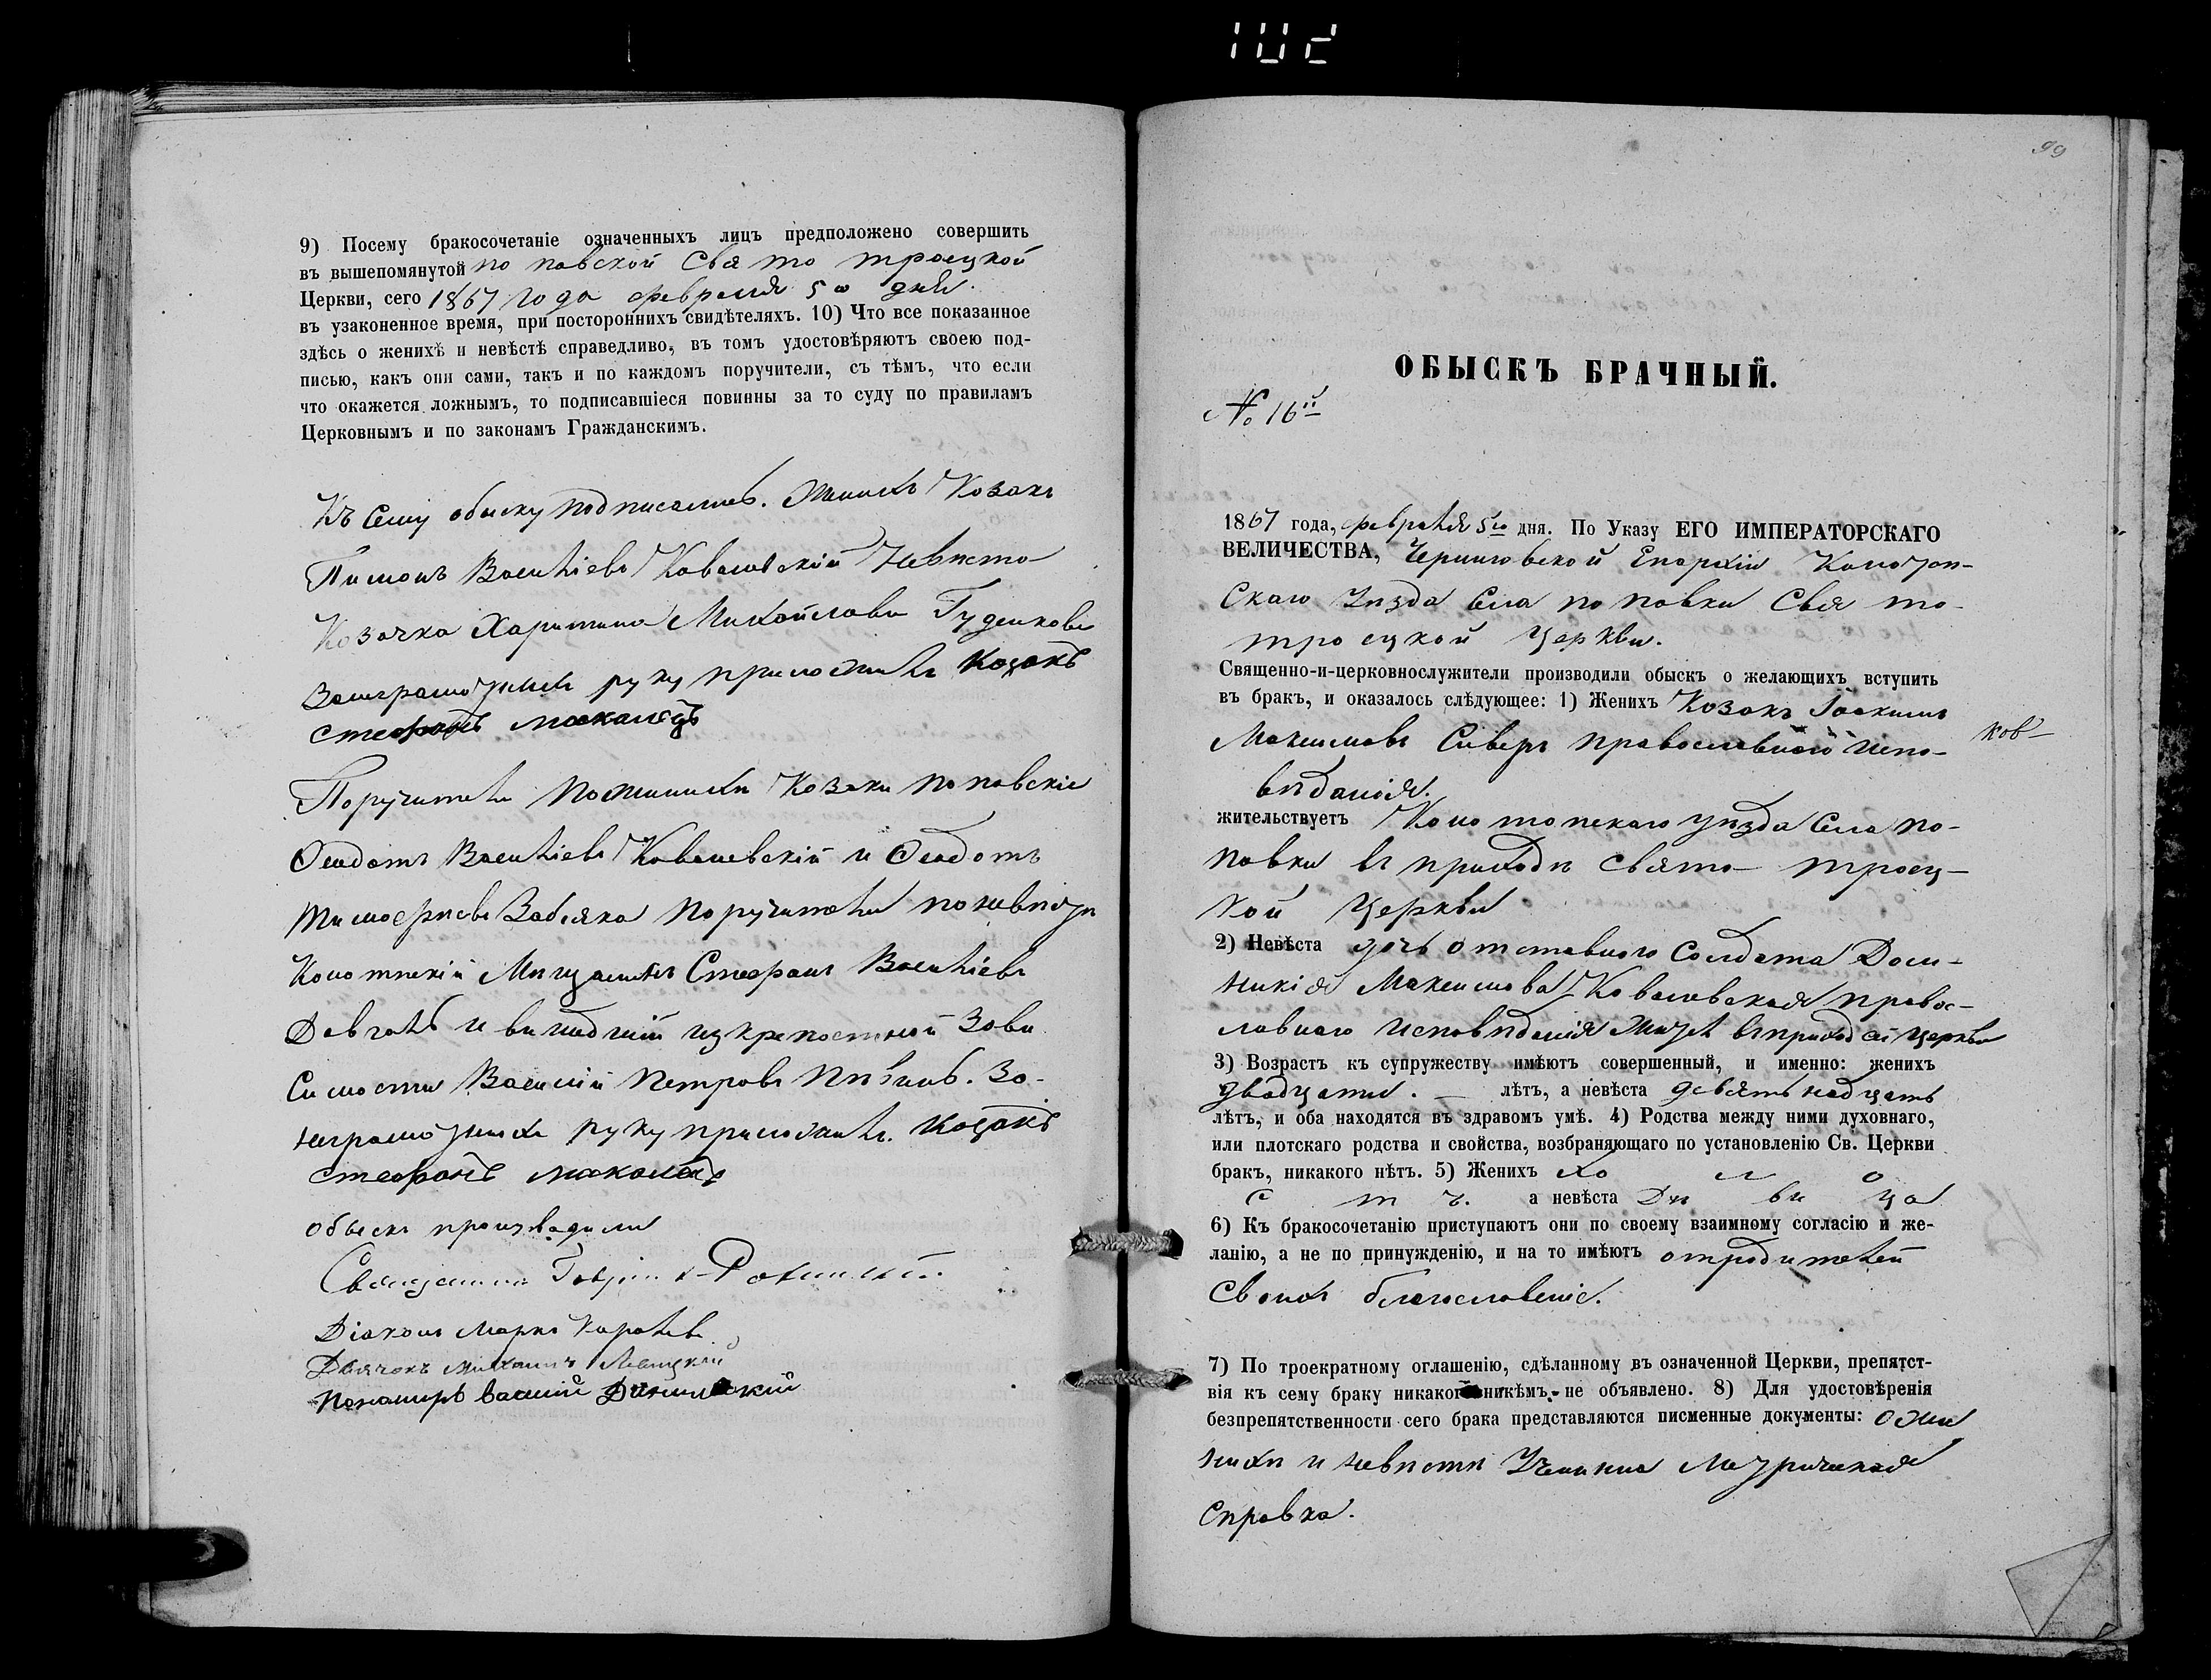 9) Посему бракосочетаніе означенныхъ лицъ предположено совершить
въ вышепомянутой поповской Свято троецкой
Церкви, сего 1867 года февраля 5го дня.
въ узаконенное время, при постороннихъ свидѣтеляхъ. 10) Что все показанное
здѣсь о женихѣ и невѣстѣ справедливо, въ томъ удостовѣряютъ своею под-
писью, какъ они сами, такъ и по каждомъ поручители, съ тѣмъ, что если
что окажется ложнымъ, то подписавшіеся повинны за то суду по правиламъ
Церковнымъ и по законамъ Гражданскимъ.
Къ Сему обыску подписались. Женихъ Козакъ
Василіевъ Ковалевскій Невѣста
Козачка Харитина Михайлова Гуденкова
руку приложилъ Козакъ
Стефанъ москалецъ
Поручители По женихи Козаки поповскіе
Феодотъ Василіевъ Ковалевскій и Феодотъ
Тимофѣевъ Забіяка Поручители по невѣсти
Конотпскій Мищанинъ Стефанъ Василіевъ
Довгаль и вишедшій изкрепостной Зави
Симости Василій Петровъ За
неграмотнихъ руку приложилъ. Козакъ
Стефанъ москалецъ
обыскъ производили
Священникъ
Діаконъ Маркъ
Дьячокъ Михаилъ Левицкій
Пономарь Василій
102
99
ОБЫСКЪ БРАЧНЫЙ.
№ 16й
1867 года, февраля 5го дня. По Указу ЕГО ИМПЕРАТОРСКАГО
ВЕЛИЧЕСТВА, Черниговской Епархіи Коно топ-
скаго Уѣзда Села поповки Свято
троецкой Церкви.
Священно-и-церковнослужители производили обыскъ о желающихъ вступить
въ бракъ, и оказалось слѣдующее: 1) Женихъ Козакъ Іоакимъ
Максимовъ Сиверъ православнаго испо-
ков
вѣданія.
жительствуетъ Конотопскаго уѣзда Села по-
повки въ приходѣ Свято троец-
кой Церкви
2) Невѣста дочь отставнаго Солдата Дом-
никія Максимова Ковалевская правос-
лавнаго исповѣданія Жит. въ приход сей церкви
3) Возрастъ къ супружеству имѣютъ совершенный, и именно: женихъ
двадцати. — лѣтъ, а невѣста девятьнадцать
лѣтъ, и оба находятся въ здравомъ умѣ. 4) Родства между ними духовнаго,
или плотскаго родства и свойства, возбраняющаго по установленію Св. Церкви
бракъ, никакого нѣтъ. 5) Женихъ хо л о
с т ъ. а невѣста Дѣ ви ца
6) Къ бракосочетанію приступаютъ они по своему взаимному согласію и же-
ланію, а не по принужденію, и на то имѣютъ отродителей
Своихъ благословеніе.
7) По троекратному оглашенію, сдѣланному въ означенной Церкви, препятст-
вія къ сему браку никакого никѣмъ не объявлено. 8) Для удостовѣренія
безпрепятственности сего брака представляются писменные документы: о же
нихи и невѣсти Учинина Метрическая
справка.